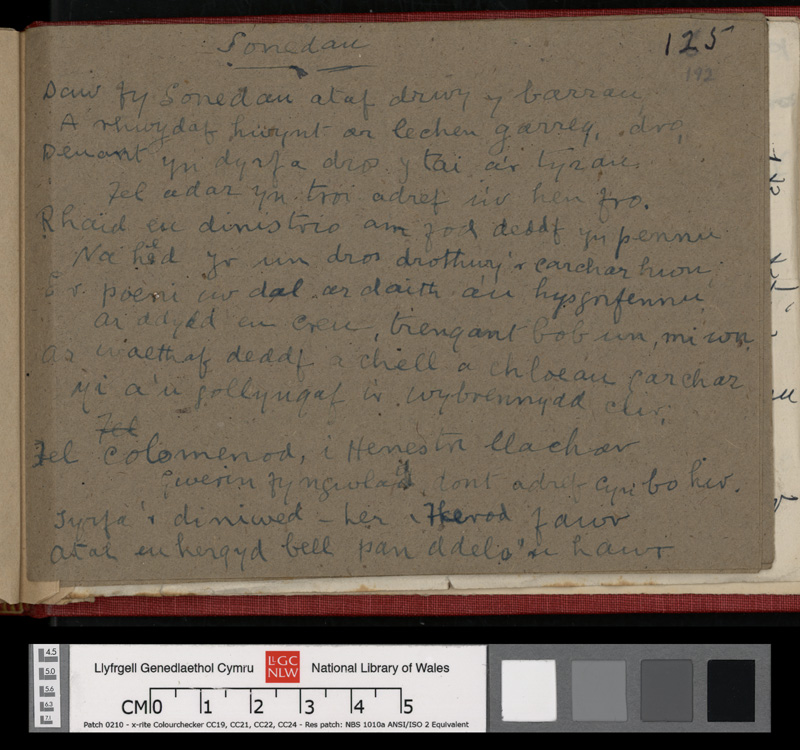 Sonedau
125
192
Daw fy Sonedau ataf drwy y barrau,
A rhwydaf hwynt ar lechen garreg, dro,
Denant yn dyrfa dros y tai a'r tyrau.
Fel adar yn troi adref i'w hen fro.
Rhaid eu dinistrio am fod deddf yn pennu
Na hed yr un dros drothwy'r carchar hwn,
I'r poeni i'w dal ar daith a'u hysgrifennu
Ar ddydd eu creu, trengant bob un, mi wn.
Ar waethaf deddf a chell a chloeau carchar
Mi a'u gollyngaf i'r wybrennydd clir,
Fel colomenod, i ffenestri llachar
Gwerin fy ngwlad, dont adref cyn bo hir.
Tyrfa'r diniwed - her i Herod fawr
Atal eu hergyd bell pan ddelo'u hawr
Llyfrgell Genedlaethol Cymru
LLGC
NLW
National Library of Wales
CM 0 1 2 3 4 5
Patch 0210 - x-rite Colourchecker CC19, CC21, CC22, CC24 - Res patch: NBS 1010a ANSI/ISO 2 Equivalent
4.5
5.0
5.6
6.3
7.1